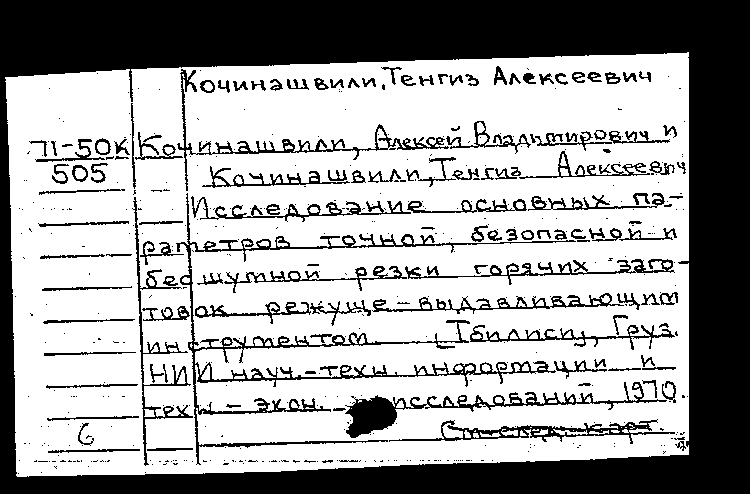 Кочинашвили, Тенгиз Алексеевич
71-50К Кочинашвили, Алексей Владимирович и
505 Кочинашвили, Тенгиз Алексеевич
Исследование основных па-
раметров точной, безопасной и
бесшумной резки горячих заго-
товок режуще-выдавливающим
инструментом. [Тбилиси], Груз.
НИИ науч.-техн. информации и
техн-экон. исследований, 1970.
6 См след. карт.